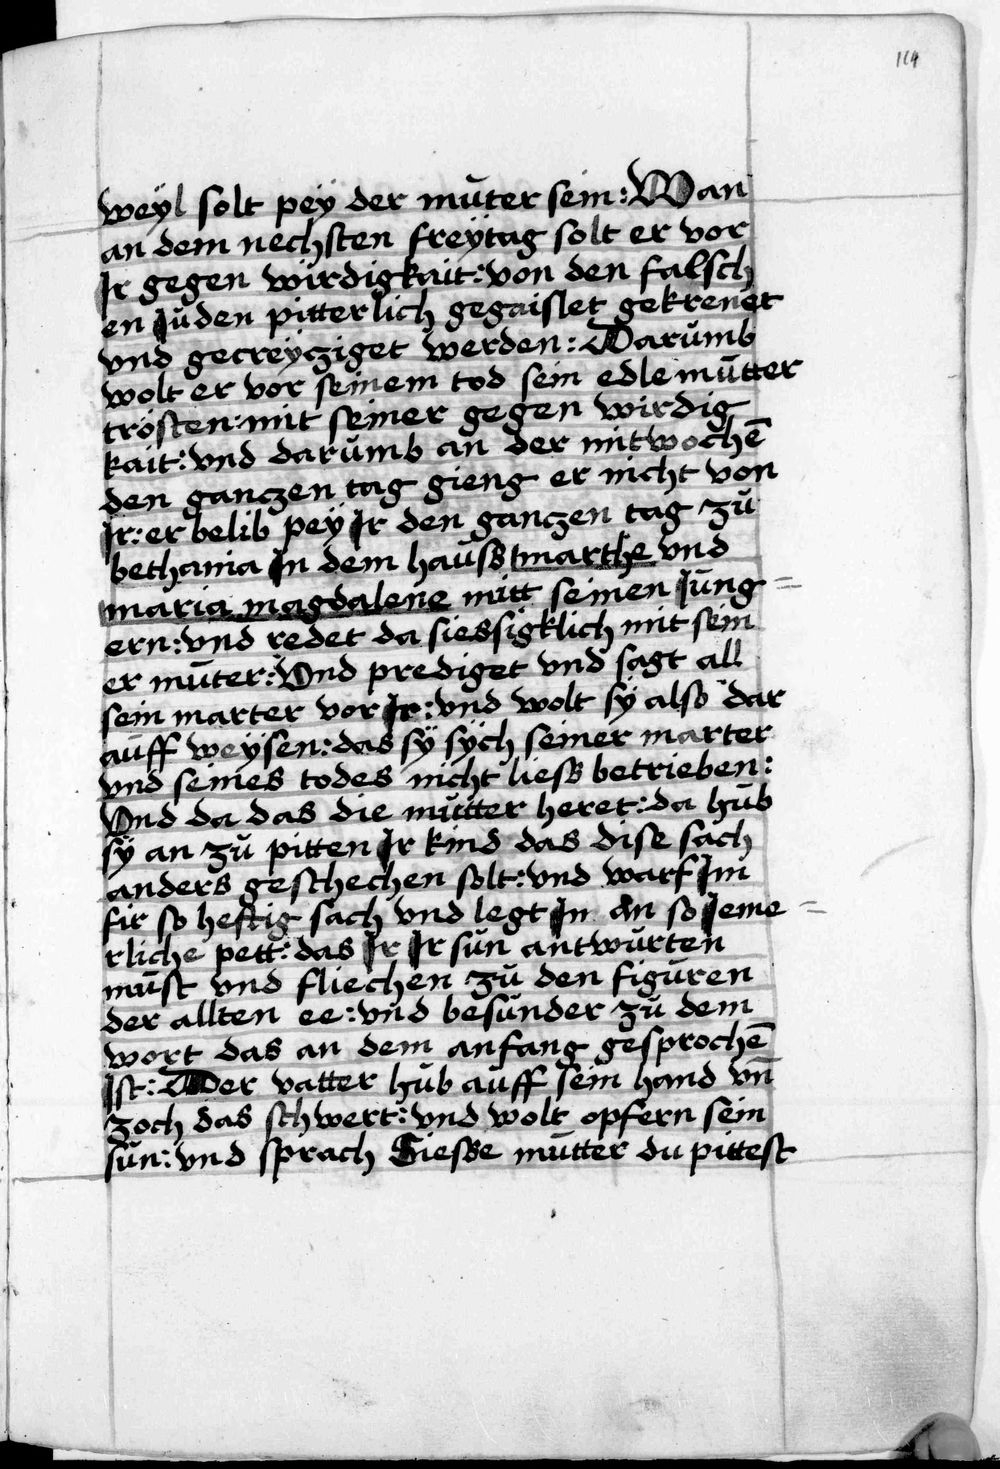 114
weyl solt peÿ der mŭter sein: Wan
an dem nechsten freÿtag solt er vor
Ir gegen wirdigkait: von den falsch
en Jŭden pitterlich gegaislet gekrenet
vnd gecreÿcziget werden: Darŭmb
wolt er vor seinem tod sein edle mŭtter
trösten: mit seiner gegen wirdig
kait: vnd darŭmb an der mitwochē
den ganczen tag gieng er nicht von
Ir: er belib peÿ Ir den ganczen tag zŭ
bethania In dem haŭss marthe vnd
maria magdalene mitt seinen Jŭng=
ern: vnd redet da siessigklich mit sein
er mŭter: Vnd prediget vnd sagt all
sein marter vor Ir: vnd wolt sÿ also dar
aŭff weÿsen: das sÿ sÿch seiner marter
vnd seines todes nicht liess betrieben:
Vnd da das die mŭtter heret: da hŭb
sÿ an zŭ pitten Ir kind das dise sach
anders geschechen solt: vnd warf Im
fir so heftig sach vnd legt In An so Jeme=
rliche pett: das Ir Ir sŭn antwŭrten
mŭst vnd fliechen zŭ den figŭren
der allten ee: vnd besŭnder zŭ dem
wort das an dem anfang gesprochē
Ist: Der vatter hŭb aŭff sein hand vn̄
zoch das schwert: vnd wolt opfern sein
sŭn: vnd sprach Siesse mŭtter du pittest